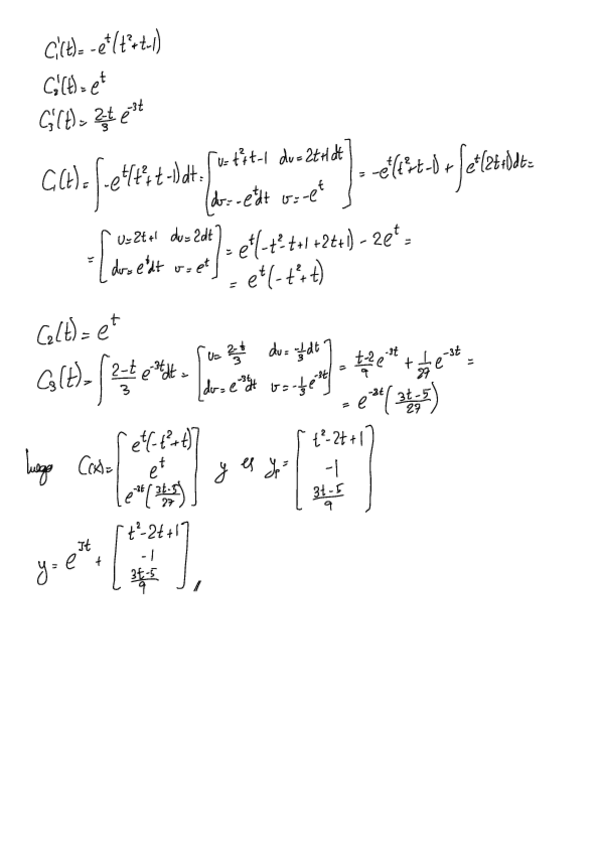 C₁'(t) = -eᵗ(t²+t-1)
C₂'(t) = eᵗ
C₃'(t) = (2-t)/3 e^(-3t)
C₁(t) = ∫ -eᵗ(t²+t-1)dt = [u = t²+t-1 du = 2t+1dt; dv = -eᵗdt v = -eᵗ] = -eᵗ(t²+t-1) + ∫ eᵗ(2t+1)dt =
= [u = 2t+1 du = 2dt; dv = eᵗdt v = eᵗ] = eᵗ(-t²-t+1+2t+1) - 2eᵗ =
= eᵗ(-t²+t)
C₂(t) = eᵗ
C₃(t) = ∫ (2-t)/3 e^(-3t) dt = [u = (2-t)/3 du = -1/3 dt; dv = e^(-3t)dt v = -1/3 e^(-3t)] = (t-2)/9 e^(-3t) + 1/27 e^(-3t) =
= e^(-3t) ((3t-5)/27)
luego C(x) = [eᵗ(-t²+t); eᵗ; e^(-3t)((3t-5)/27)] y es yₚ = [t²-2t+1; -1; (3t-5)/9]
y = e^(Jt) + [t²-2t+1; -1; (3t-5)/9]